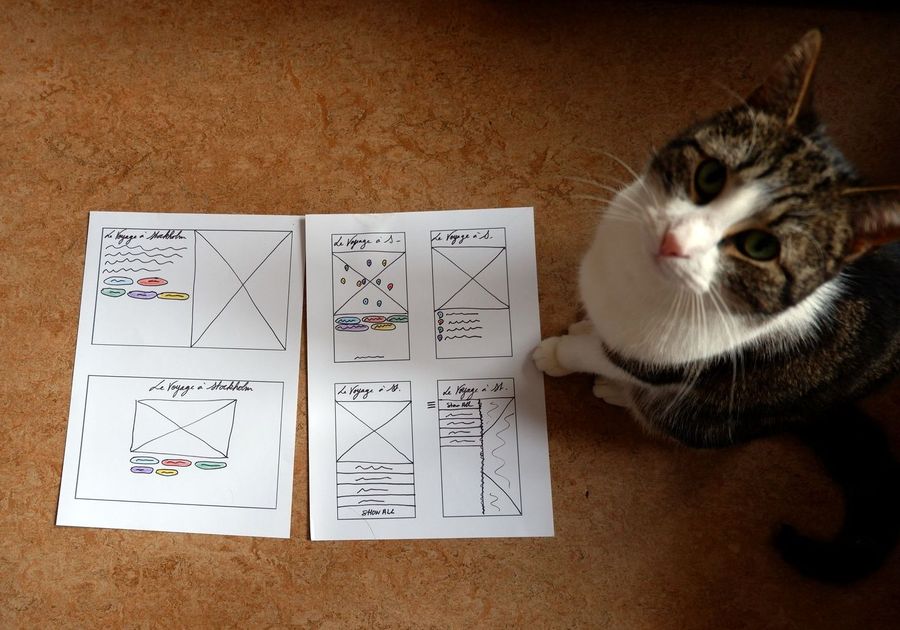 Le Voyage à Stockholm
Le Voyage à Stockholm
Le Voyage à S-
Le Voyage à S.
Le Voyage à St.
SHOW ALL
Le Voyage à St.
Show ALL